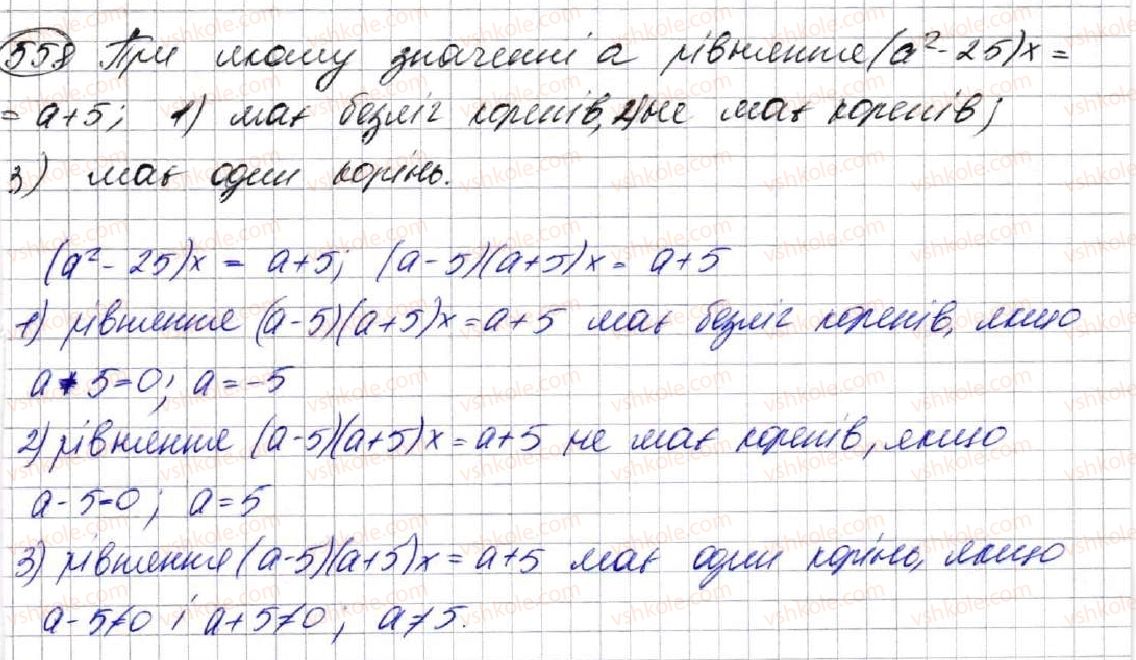 558 При якому значенні а рівняння (a²-25)x =
= a+5; 1) має безліч коренів, 2) не має коренів;
3) має один корінь.
(a²-25)x = a+5; (a-5)(a+5)x = a+5
1) рівняння (a-5)(a+5)x = a+5 має безліч коренів, якщо
a+5=0; a=-5
2) рівняння (a-5)(a+5)x = a+5 не має коренів, якщо
a-5=0; a=5
3) рівняння (a-5)(a+5)x = a+5 має один корінь, якщо
a-5≠0 і a+5≠0; a≠5.